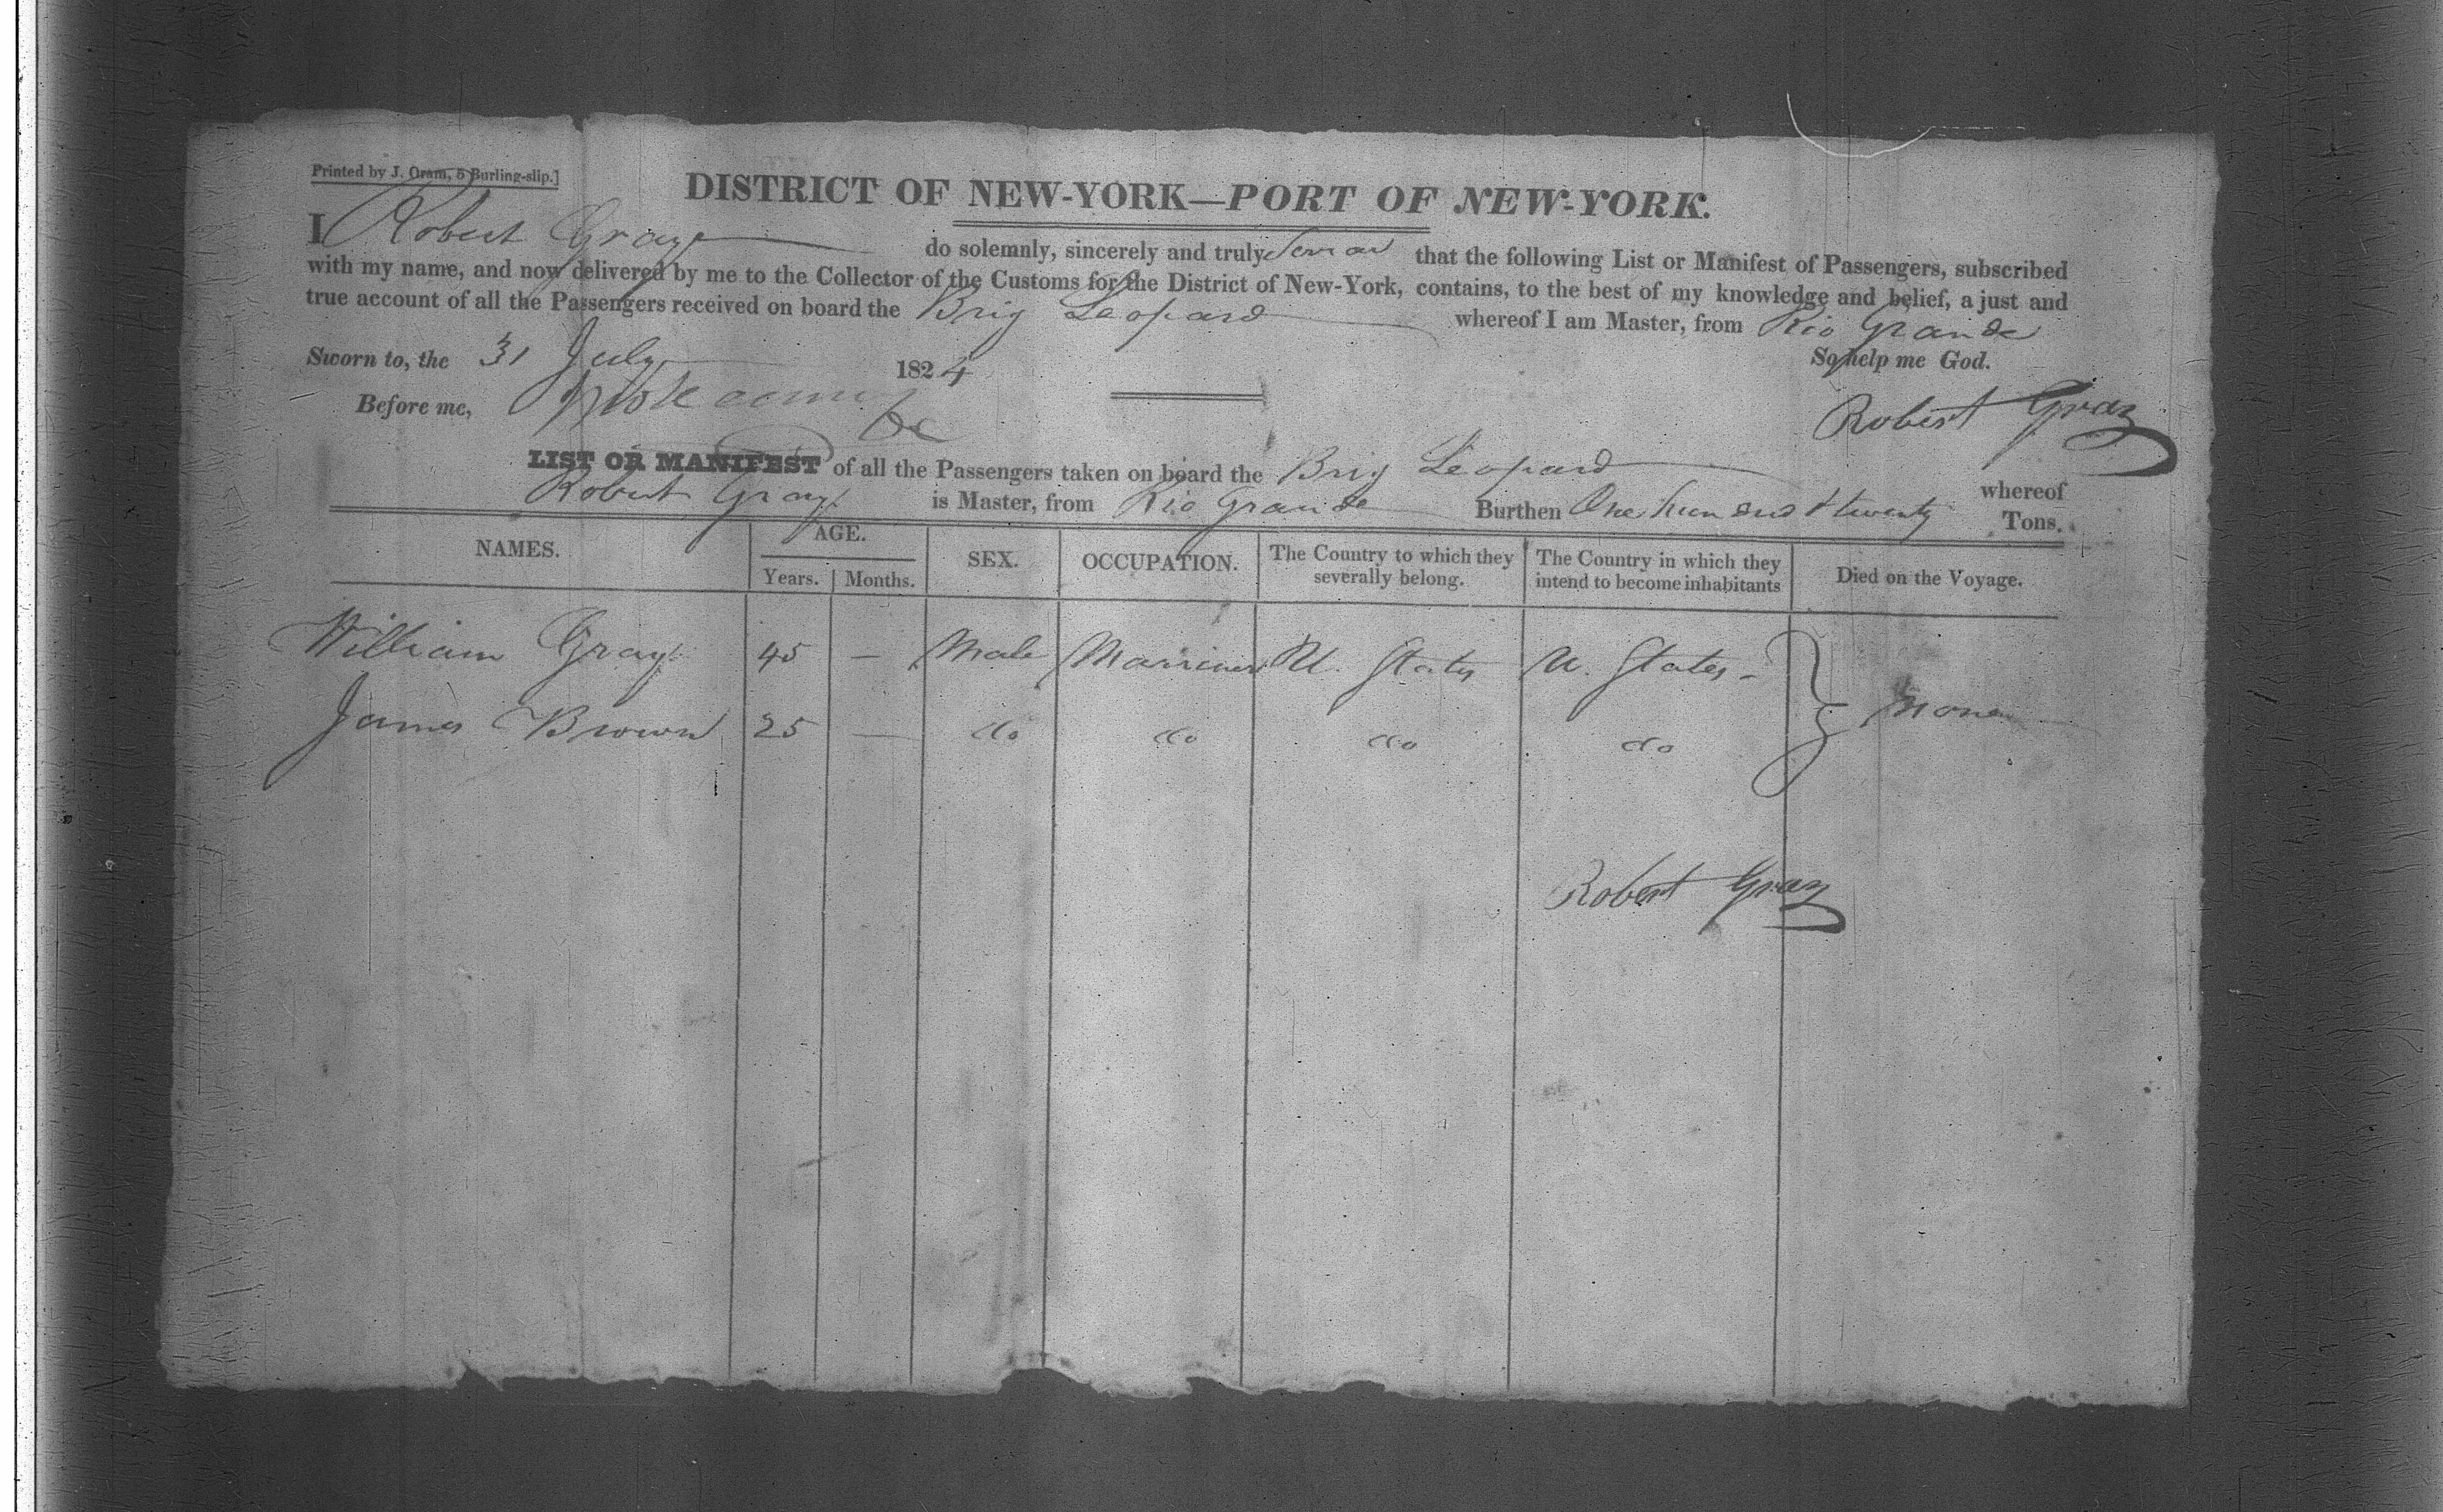 Printed by J. Oram, 5 Burling-slip.]
DISTRICT OF NEW-YORK—PORT OF NEW-YORK.
I Robert Gray do solemnly, sincerely and truly Swear that the following List or Manifest of Passengers, subscribed
with my name, and now delivered by me to the Collector of the Customs for the District of New-York, contains, to the best of my knowledge and belief, a just and
true account of all the Passengers received on board the Brig Leopard whereof I am Master, from Rio Grande
Sworn to, the 31 July 1824 So help me God.
Before me,
Robert Gray
LIST OR MANIFEST of all the Passengers taken on board the Brig Leopard whereof
Robert Gray is Master, from Rio Grande Burthen One hundred & twenty Tons.
NAMES. AGE. SEX. OCCUPATION. The Country to which they severally belong. The Country in which they intend to become inhabitants Died on the Voyage.
Years. Months.
William Gray 45 — Male Marriner U. States U. States -
James Brown 25 — do do do do
None
Robert Gray